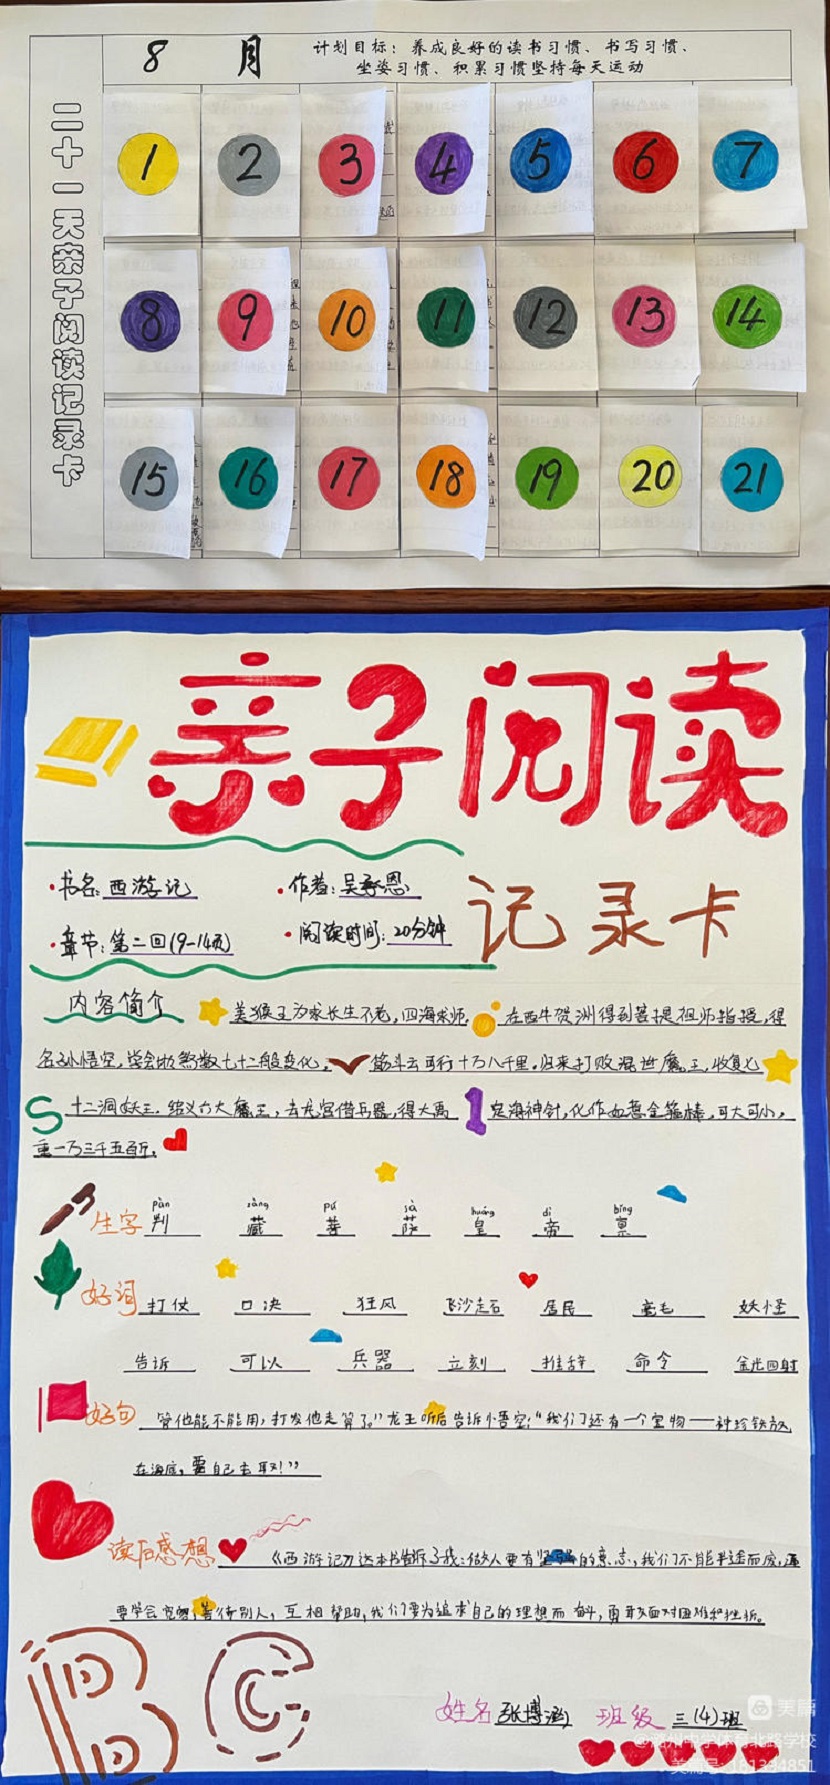 8 月
计划目标：养成良好的读书习惯、书写习惯、
坐姿习惯、积累习惯坚持每天运动
二十一天亲子阅读记录卡
1 2 3 4 5 6 7
8 9 10 11 12 13 14
15 16 17 18 19 20 21
亲子阅读
记录卡
·书名：西游记 ·作者：吴承恩
·章节：第二回(9-14页) ·阅读时间：20分钟
内容简介 美猴王为求长生不老，四海求师。在西牛贺洲得到菩提祖师指授，得
名孙悟空，学会地煞数七十二般变化，筋斗云可行十万八千里。归来打败混世魔王，收复七
十二洞妖王，结义六大魔王，去龙宫借兵器，得大禹定海神针，化作如意金箍棒，可大可小，
重一万三千五百斤。
pàn zàng pú sà huáng dì bǐng
生字 判 藏 菩 萨 皇 帝 禀
好词 打仗 口决 狂风 飞沙走石 居民 毫毛 妖怪
告诉 可以 兵器 立刻 推辞 命令 金光四射
好句 管他能不能用，打发他走算了。”龙王听后告诉悟空：“我们还有一个宝物——神珍铁放
在海底，要自己去取！”
读后感想 《西游记》这本书告诉了我：做人要有坚强的意志，我们不能半途而废，还
要学会宽容，善待别人，互相帮助，我们要为追求自己的理想而奋斗，勇敢面对困难和挫折。
B C
姓名 张博涵 班级 三(4)班
美篇